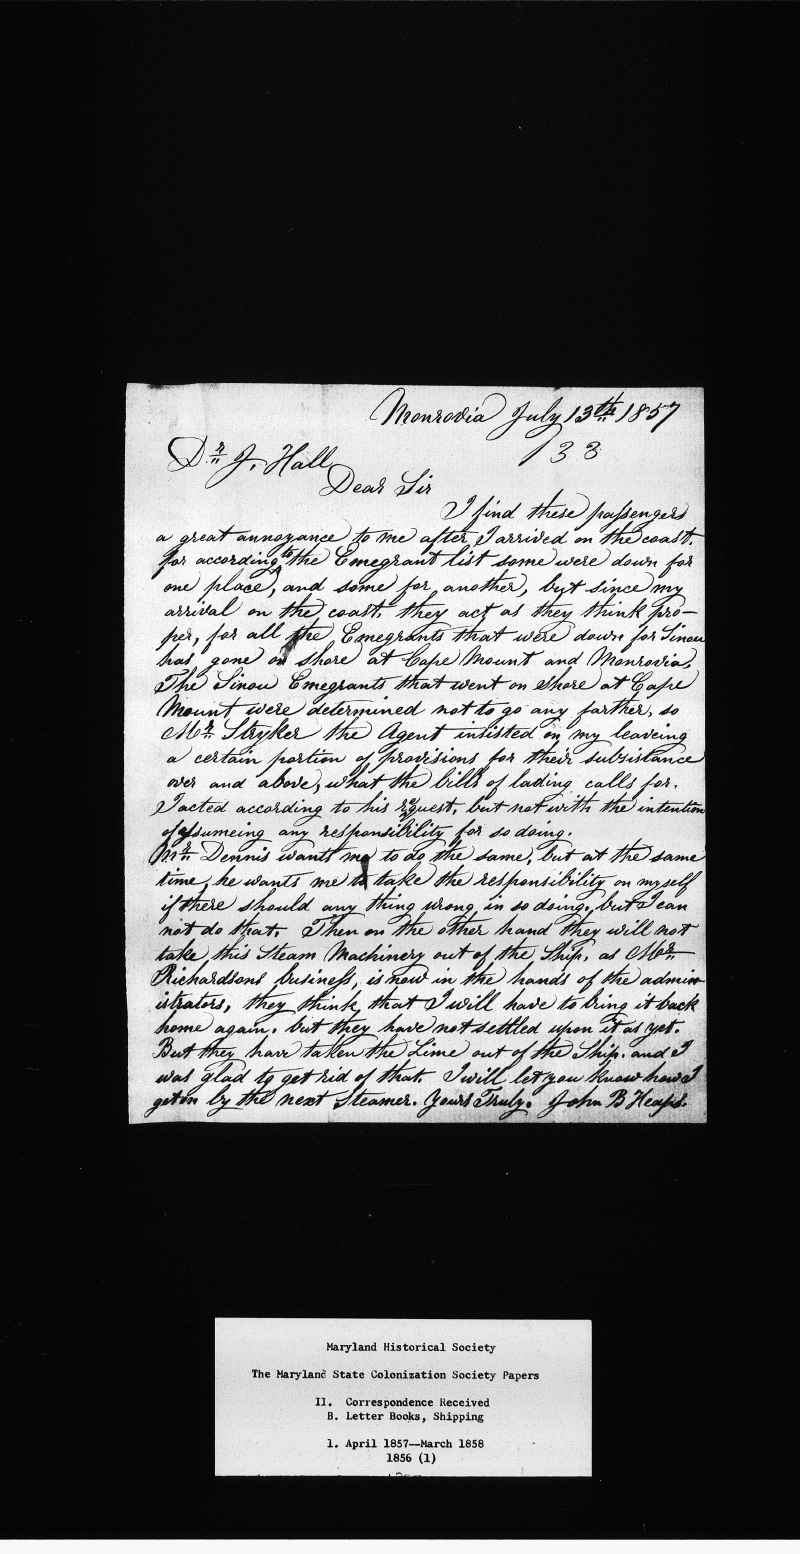 Monrovia July 13th 1857
133
Dr J. Hall
Dear Sir
I find these passengers
a great annoyance to me after I arrived on the coast.
for according to the Emegrant list some were down for
one place, and some for another, but since my
arrival on the coast. they act as they think pro-
per, for all the Emegrants that were down for Sinou
has gone on shore at Cape Mount and Monrovia.
The Sinou Emegrants that went on shore at Cape
Mount were determined not to go any farther, so
Mr Stryker the Agent insisted on my leaveing
a certain portion of provisions for their subsistance
over and above, what the bills of lading calls for.
I acted according to his request, but not with the intention
of assumeing any responsibility for so doing.
Mr Dennis wants me to do the same, but at the same
time, he wants me to take the responsibility on myself
if there should any thing wrong in so doing, but I can
not do that. Then on the other hand they will not
take this Steam Machinery out of the Ship, as Mr
Richardsons business, is now in the hands of the admin-
istrators, they think that I will have to bring it back
home again. but they have not settled upon it as yet.
But they have taken the Lime out of the Ship. and I
was glad to get rid of that. I will let you know how I
get on by the next Steamer. Yours Truly. John B Heaps.
Maryland Historical Society
The Maryland State Colonization Society Papers
II. Correspondence Received
B. Letter Books, Shipping
1. April 1857--March 1858
1856 (1)